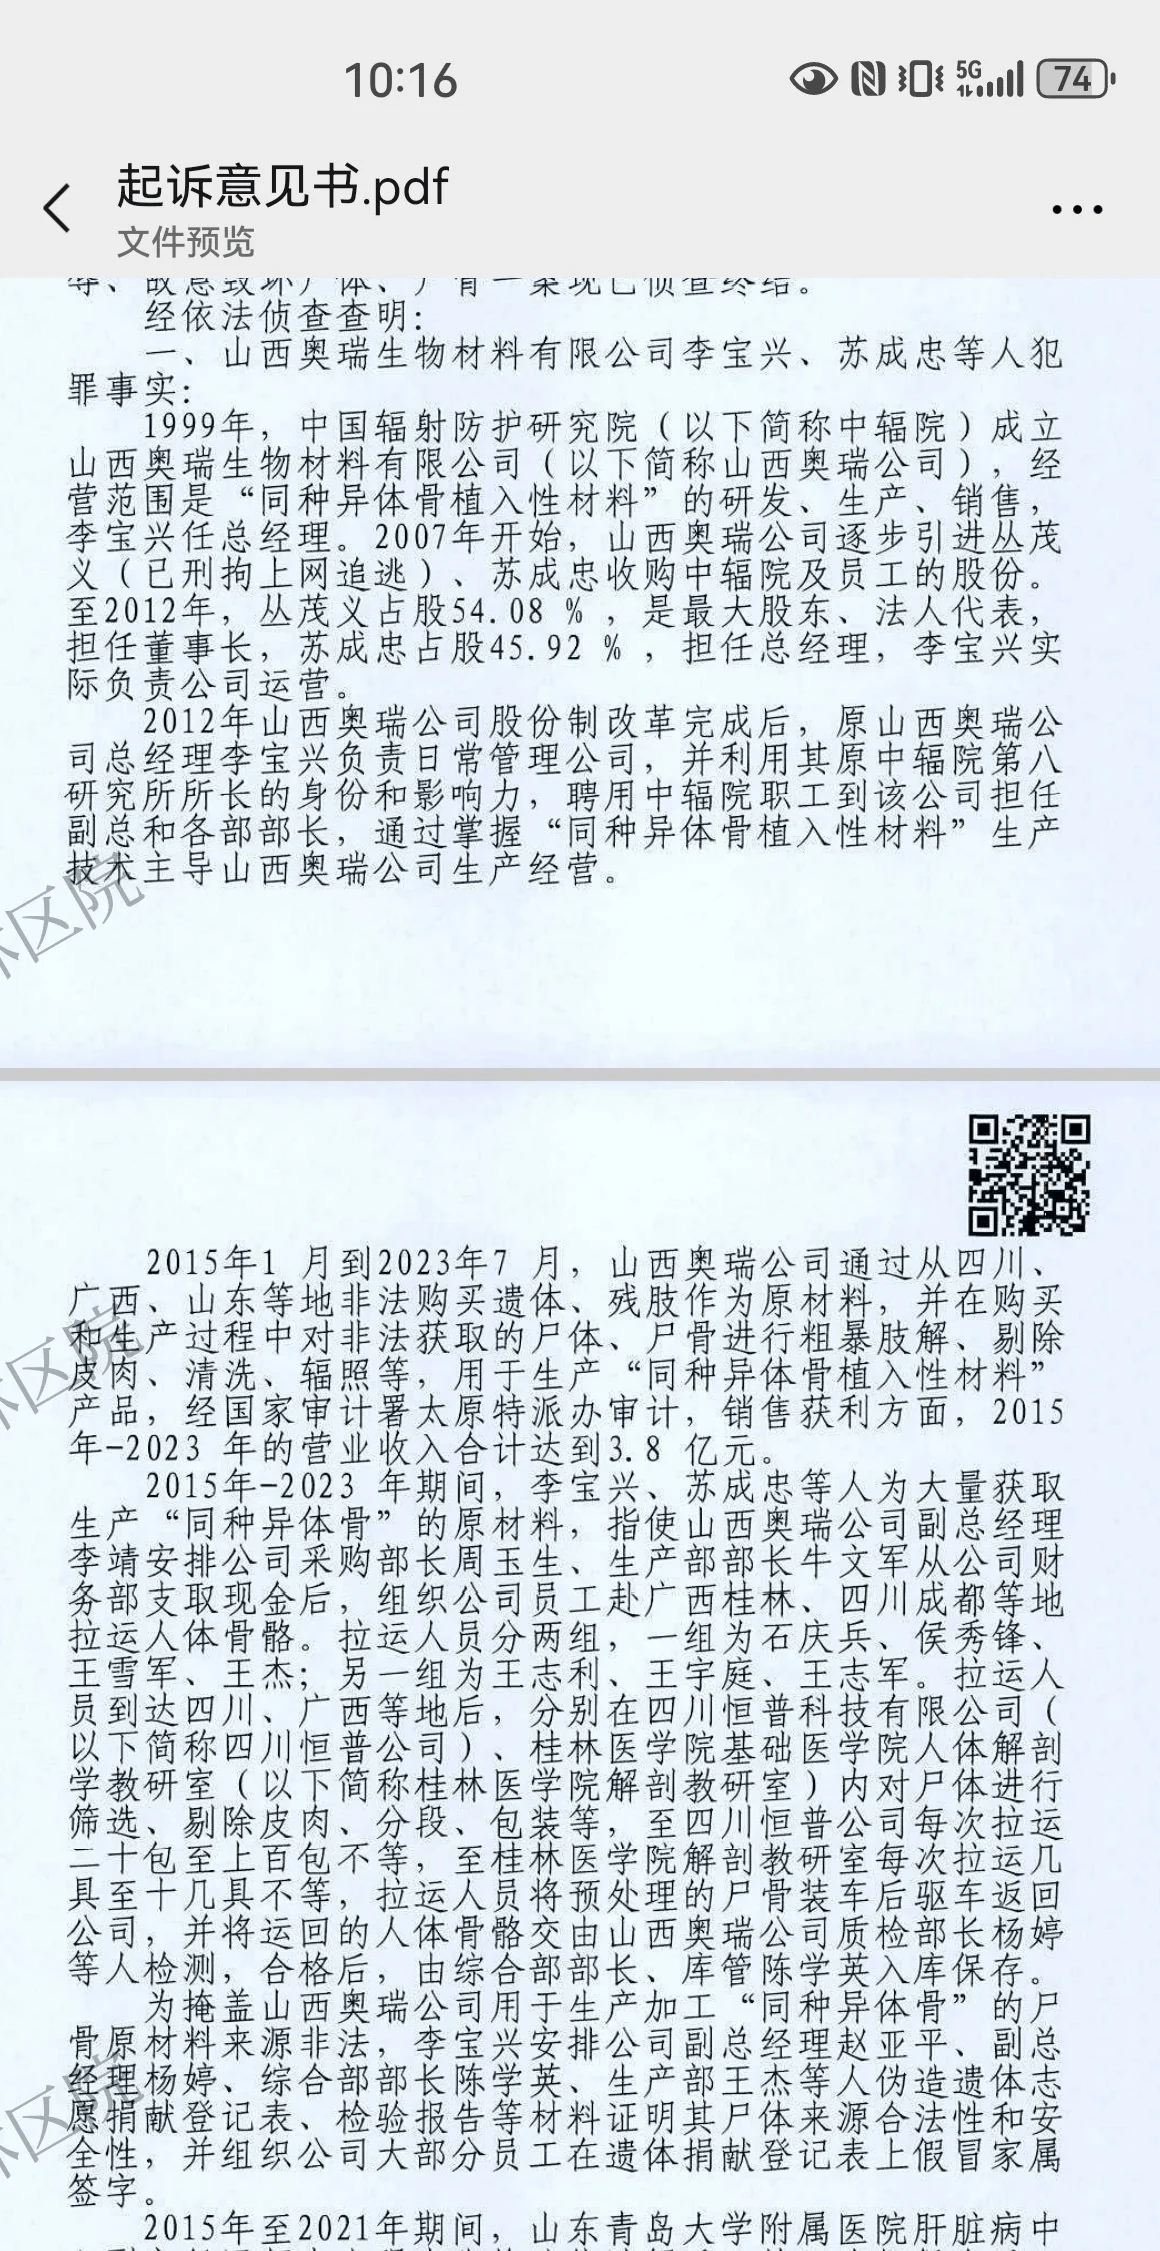 10:16
5G
74
起诉意见书.pdf
文件预览
辱、故意毁坏尸体、尸骨一案现已侦查终结。
经依法侦查查明：
一、山西奥瑞生物材料有限公司李宝兴、苏成忠等人犯
罪事实：
1999年，中国辐射防护研究院（以下简称中辐院）成立
山西奥瑞生物材料有限公司（以下简称山西奥瑞公司），经
营范围是“同种异体骨植入性材料”的研发、生产、销售，
李宝兴任总经理。2007年开始，山西奥瑞公司逐步引进丛茂
义（已刑拘上网追逃）、苏成忠收购中辐院及员工的股份。
至2012年，丛茂义占股54.08 %，是最大股东、法人代表，
担任董事长，苏成忠占股45.92 %，担任总经理，李宝兴实
际负责公司运营。
2012年山西奥瑞公司股份制改革完成后，原山西奥瑞公
司总经理李宝兴负责日常管理公司，并利用其原中辐院第八
研究所所长的身份和影响力，聘用中辐院职工到该公司担任
副总和各部部长，通过掌握“同种异体骨植入性材料”生产
技术主导山西奥瑞公司生产经营。
林区院
2015年1 月到2023年7 月，山西奥瑞公司通过从四川、
广西、山东等地非法购买遗体、残肢作为原材料，并在购买
和生产过程中对非法获取的尸体、尸骨进行粗暴肢解、剔除
皮肉、清洗、辐照等，用于生产“同种异体骨植入性材料”
产品，经国家审计署太原特派办审计，销售获利方面，2015
年-2023 年的营业收入合计达到3.8 亿元。
林区院
2015年-2023 年期间，李宝兴、苏成忠等人为大量获取
生产“同种异体骨”的原材料，指使山西奥瑞公司副总经理
李靖安排公司采购部长周玉生、生产部部长牛文军从公司财
务部支取现金后，组织公司员工赴广西桂林、四川成都等地
拉运人体骨骼。拉运人员分两组，一组为石庆兵、侯秀锋、
王雪军、王杰；另一组为王志利、王宇庭、王志军。拉运人
员到达四川、广西等地后，分别在四川恒普科技有限公司（
以下简称四川恒普公司）、桂林医学院基础医学院人体解剖
学教研室（以下简称桂林医学院解剖教研室）内对尸体进行
筛选、剔除皮肉、分段、包装等，至四川恒普公司每次拉运
二十包至上百包不等，至桂林医学院解剖教研室每次拉运几
具至十几具不等，拉运人员将预处理的尸骨装车后驱车返回
公司，并将运回的人体骨骼交由山西奥瑞公司质检部长杨婷
等人检测，合格后，由综合部部长、库管陈学英入库保存。
为掩盖山西奥瑞公司用于生产加工“同种异体骨”的尸
骨原材料来源非法，李宝兴安排公司副总经理赵亚平、副总
经理杨婷、综合部部长陈学英、生产部王杰等人伪造遗体志
愿捐献登记表、检验报告等材料证明其尸体来源合法性和安
全性，并组织公司大部分员工在遗体捐献登记表上假冒家属
签字。
林区院
2015年至2021年期间，山东青岛大学附属医院肝脏病中